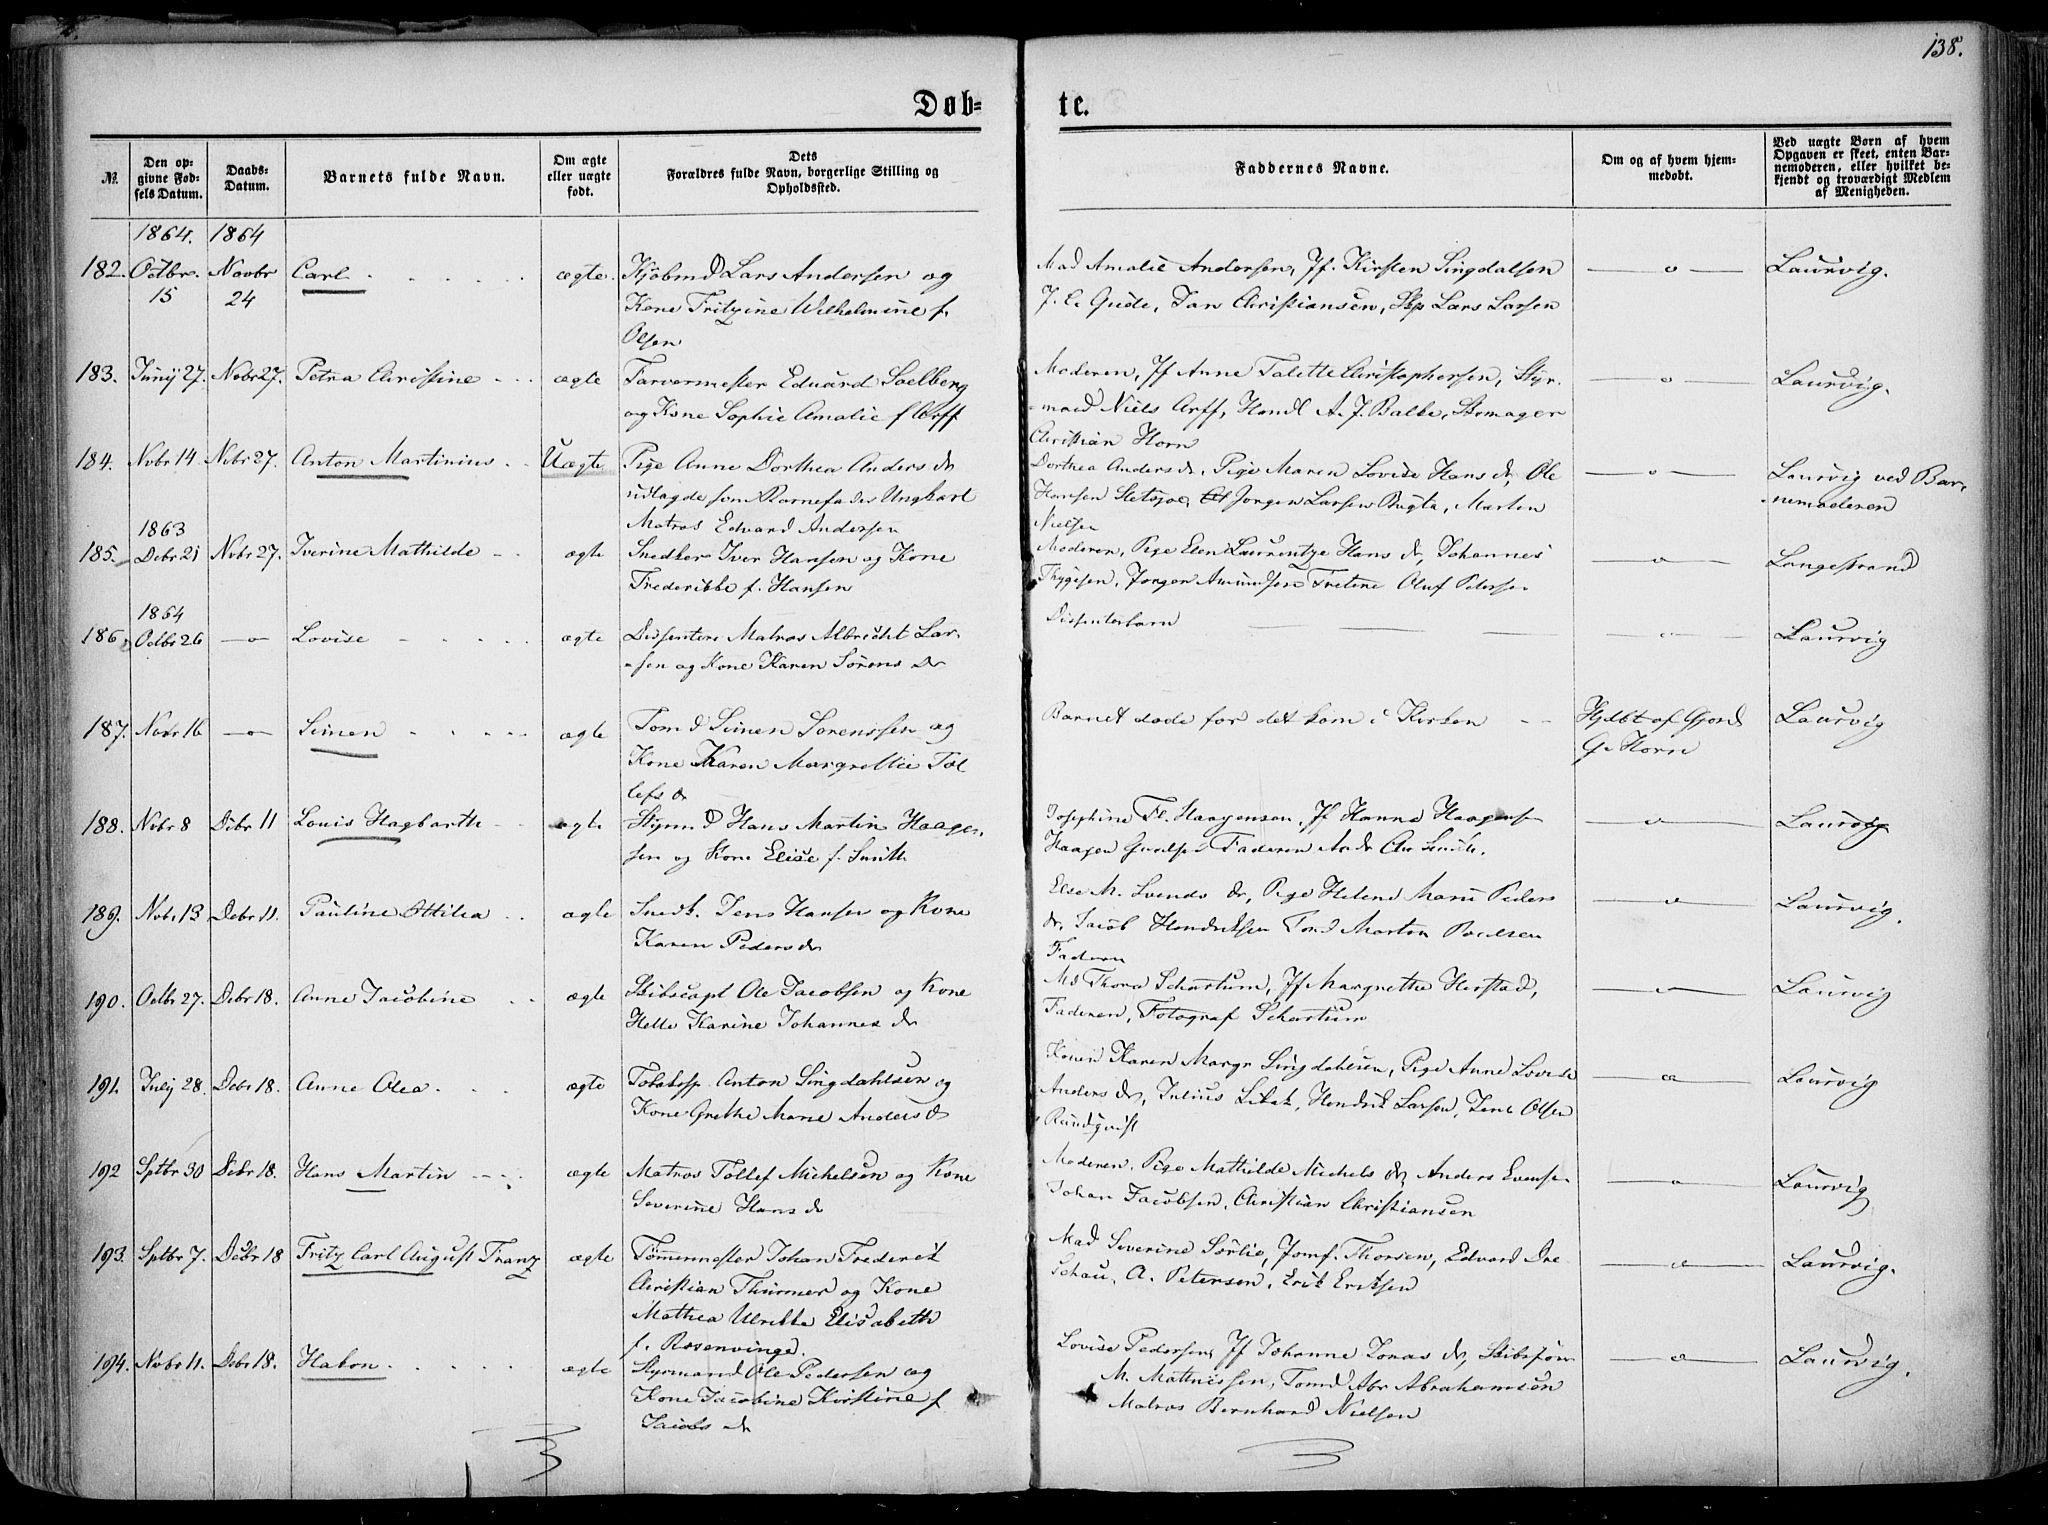 138.
Døb=
te.
№.
Den op=
givne Fød=
sels Datum.
Daabs=
Datum.
Barnets fulde Navn.
Om ægte
eller uægte
født.
Dets
Forældres fulde Navn, borgerlige Stilling og
Opholdssted.
Faddernes Navne.
Om og af hvem hjem=
medøbt.
Ved uægte Børn af hvem
Opgaven er skeet, enten Bar=
nemoderen, eller hvilket be=
kjendt og troværdigt Medlem
af Menigheden.
1864. 1864
182. Octbr. 15 Novbr 24 Carl ægte.
Kjøbmd Lars Andersen og
Kone Fritzine Wilhelmine f.
Olsen
Mad Amalie Andersen, Jf. Kirsten Singdalsen
J. C. Gude, Jans Christiansen, Skp Lars Larsen
— o — Laurvig.
183. Junij 27. Nvbr 27. Petra Christine ægte
Farvermester Eduard Soelberg
og Kone Sophie Amalie f Arff
Moderen, Jf Anne Talette Christophersen, Styr=
mand Niels Arff, Handl A. J. Balke, Skomager
Christian Horn
— o — Laurvig.
184. Nvbr 14 Nvbr 27. Anton Martinius Uægte
Pige Anne Dorthea Anders dr
udlagde som Barnefader Ungkarl
Matros Edvard Andersen
Dorthea Anders dr, Pige Maren Lovise Hans dr, Ole
Hansen Sletsjøe, Jørgen Larsen Bugta, Marten
Nielsen
— o — Laurvig ved Bar=
nemoderen
1863
185. Debr 21 Nvbr 27. Iverine Mathilde ægte
Snedker Iver Hansen og Kone
Frederikke f. Hansen
Moderen, Pige Elen Laurentze Hans dr, Johannes
Thygesen, Jørgen Amundsen Tretene Oluf Petersen
— o — Langestrand
1864
186. Octbr 26 — o — Lovise ægte
Dissenter Matros Albrecht Lar=
sen og Kone Karen Sørens Dr
Dissenterbarn — — — Laurvig
187. Nvbr 16 — o — Simen ægte
Tomd Simen Sørenssen og
Kone Karen Margrethe Tol
lefs dr
Barnet døde før det kom i Kirken
Hjdbt af Gjord
G. Horn
Laurvig
188. Nvbr 8 Debr 11 Louis Hagbarth ægte
Styrmd Hans Martin Haagen
sen og Kone Elise f. Smith
Josephine Fr. Haagensen, Jf Hanna Haagens
Haagen Gundersen Faderen Andr Chr Smith.
— o — Laurvig
189. Nvbr 13 Debr 11. Pauline Ottilia ægte
Snedk. Jens Hansen og Kone
Karen Peders dr
Else M. Svends dr, Pige Helene Marie Peders
dr, Jacob Hendriksen Tomd Marton Paulsen
Faderen
— o — Laurvig.
190. Octbr 27. Debr 18. Anne Jacobine ægte
Skibscapt Ole Jacobsen og Kone
Helle Karine Johannes dr
Md Thora Schartum, Jf Margrethe Herstad,
Faderen, Fotograf Schartum
— o — Laurvig
191. Julij 28. Debr 18. Anne Olea ægte
Tobaksp. Anton Singdahlsen og
Kone Grethe Marie Anders dr
Konen Karen Margr Singdahlsen, Pige Anne Lovise
Anders dr, Julius Holst, Hendrik Larsen, Jens Olsen
Rundqvist
— o — Laurvig
192 Sptbr 30 Debr 18. Hans Martin ægte
Matros Tollef Michelsen og Kone
Severine Hans dr
Moderen, Pige Mathilde Michels dr, Anders Evensen
Johan Jacobsen, Christian Christiansen
— o — Laurvig
193. Sptbr 7. Debr 18 Fritz Carl August Franz ægte
Tømmermester Johan Frederik
Christian Thürmer og Kone
Mathea Ulrikke Elisabeth
f. Rosenvinge.
Mad Severine Sørlie, Jomf. Thorsen, Edvard Dre
schau, A. Petersen, Erik Eriksen
— o — Laurvig.
194. Nvbr 11. Debr 18. Hakon ægte
Styrmand Ole Pedersen og
Kone Jacobine Kirstine f
Jacobs dr
Lovise Pedersen, Jf Johanne Jonas dr, Skibstøm
M. Mathiessen, Tomd Abr Abrahamsen
Matros Bernhard Nielsen
— o — Laurvig.